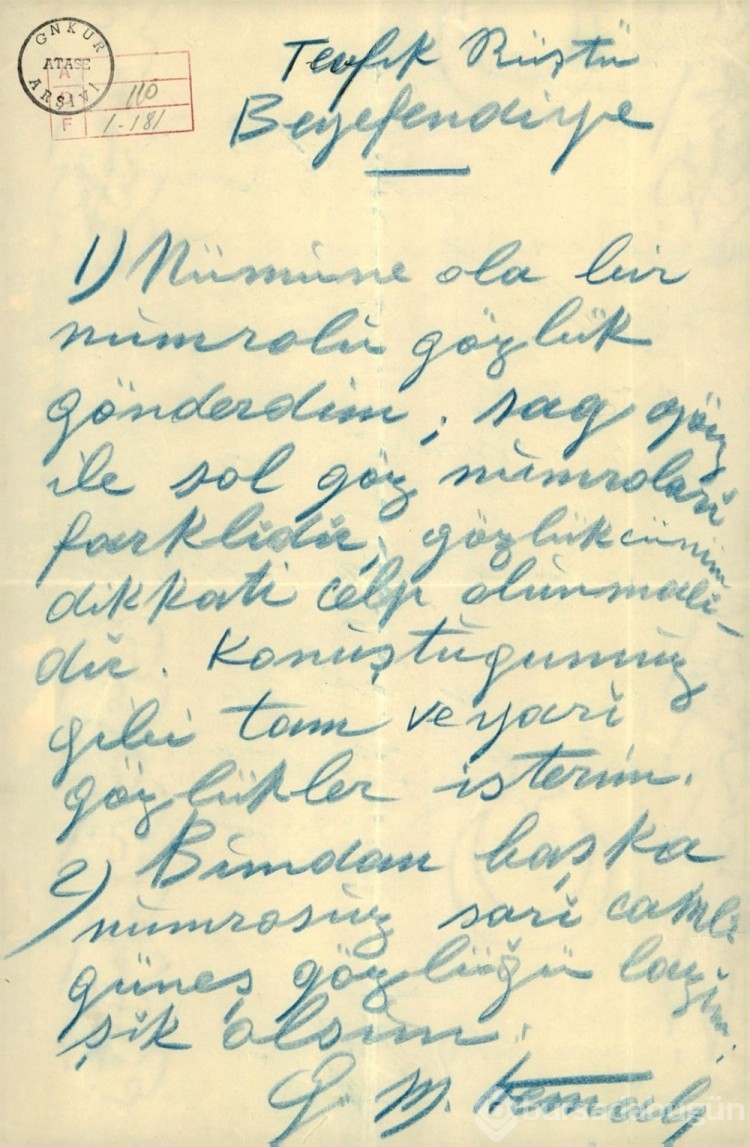 GNKUR
ATASE
ARŞİVİ
A
110
F
1-181
Tevfik Rüştü
Beyefendiye
1) Nümüne ola bir
numrolu gözlük
gönderdim, sag göz
ile sol göz numrolari
farklidir, gözlükcünün
dikkati celp olunmali-
dir. Konuştugumuz
gibi tam ve yari
gözlükler isterim.
2) Bundan başka
numrosuz sari camli
güneş gözlüğü lazim,
şik olsun.
G. M. Kemal
bursadabugün